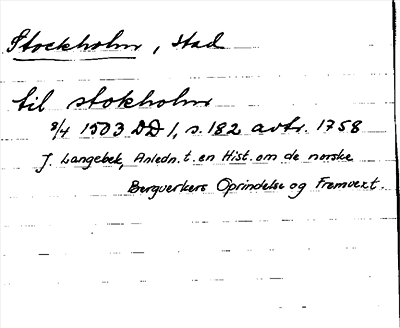 Stockholm, stad
til stokholm
8/4 1503 DD 1, s. 182 avtr. 1758
J. Langebek, Anledn. t. en Hist. om de norske
Bergverkers Oprindelse og Fremvext.